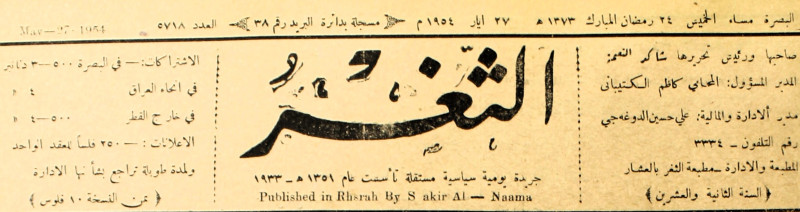 البصرة مساء الخميس ٢٤ رمضان المبارك ١٣٧٣ هـ ٢٧ ايار ١٩٥٤ م مسجلة بدائرة البريد رقم ٣٨ العدد ٥٧١٨
May—27—1954
صاحبها ورئيس تحريرها شاكر النعمة
المدير المسؤول: المحامي كاظم الكتيباني
مدير الادارة والمالية: علي حسين الدوغه جي
رقم التلفون — ٣٣٣٤
المطبعة والادارة — مطبعة الثغر بالعشار
﴿ السنة الثانية والعشرين ﴾
الثغر
جريدة يومية سياسية مستقلة تأسست عام ١٣٥١ هـ — ١٩٣٣
Published in Rhsrah By S akir Al — Naama
الاشتراكات: — في البصرة ٥٠٠—٣ دنانير
في انحاء العراق ٤ »
في خارج القطر ٥٠٠—٤ »
الاعلانات: — ٢٥٠ فلساً للعقد الواحد
ولمدة طويلة تراجع بشأنها الادارة
﴿ ثمن النسخة ١٠ فلوس ﴾